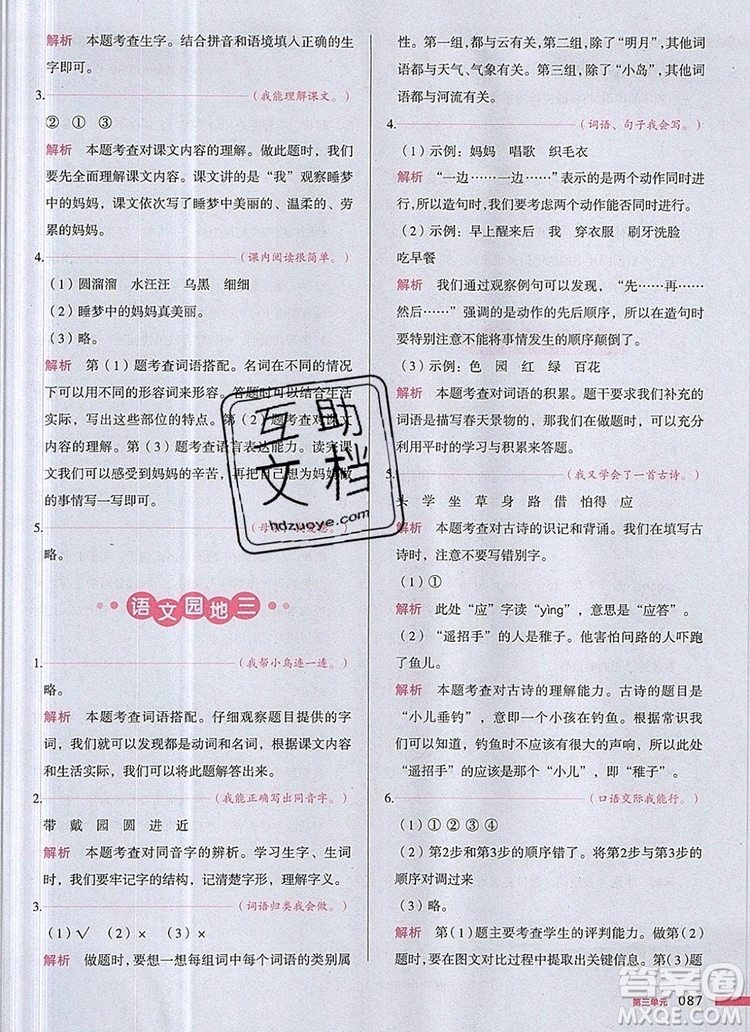 解析 本题考查生字。结合拼音和语境填入正确的生
字即可。
3.（我能理解课文。）
② ① ③
解析 本题考查对课文内容的理解。做此题时，我们
要先全面理解课文。课文讲的是“我”观察睡梦
中的妈妈，课文依次写了睡梦中的美丽的、温柔的、劳
累的妈妈。
4.（课内阅读很简单。）
（1）圆溜溜 水汪汪 乌黑 细细
（2）睡梦中的妈妈真美丽。
（3）略。
解析 第（1）题考查词语搭配。名词在不同的情况
下可以用不同的形容词来形容。答题时可以结合生活
实际，写出这些部位的特点。第（2）题考查对课
内容的理解。第（3）题考查语言表达能力。读完课
文我们感受到妈妈的辛苦，再把自己想为妈妈做
的事情写一写即可。
5.
略。
语文园地三
1.（我帮小鸟连一连。）
略。
解析 本题考查词语搭配。仔细观察题目提供的字
词，我们就可以发现都是动词和名词，根据课文内容
和生活实际，我们就可以把题解答出来。
2.（我能正确写出同音字。）
带 戴 园 圆 进 近
解析 本题考查对同音字的辨析。学习生字、生词
时，我们要牢记字的结构，记清楚字义。
3.（词语归类我会做。）
（1）√ （2）× （3）×
解析 做题时，要想一想每组词中每个词语的类别属
性。第一组，都与云有关。第二组，除了“明月”，其他
词语都与天气、气象有关。第三组，除了“小岛”，其他
词语都与河流有关。
4.（词语、句子我会写。）
（1）示例：妈妈 唱歌 织毛衣
解析 “一边……一边……”表示的是两个动作同时进
行，所以造句时，我们要考虑两个动作能否同时进行。
（2）示例：早上醒来后 我 穿衣服 刷牙洗脸
吃早餐
解析 我们通过观察例句可以发现，“先……再……
然后……”强调的是动作的先后顺序，所以我们造句时
要特别注意不能将事情发生的顺序颠倒了。
（3）示例：色 园 红 绿 百花
解析 本题考查对词语的积累。题干要求我们补充的
词语是描写春天景物的，那么我们在做题时，可以充分
利用平时的学习与积累来答题。
5.（我又学会了一首古诗。）
头 学 坐 草 身 路 借 怕得 应
解析 本题考查对古诗的识记和背诵。我们在填写古
诗时，注意不要写错别字。
（1）①
解析 此处“应”字读“yìng”，意思是“应答”。
（2）“遥招手”的人是稚子。他害怕问路的人吓跑
了鱼儿。
解析 本题考查对古诗的理解能力。古诗的题目是
“小儿垂钓”，意思是一个小孩在钓鱼。根据常识我
们可以知道，钓鱼时不能有很大的声响，所以做出
“遥招手”的动作的应该是那个“小儿”，即“稚子”。
6.（口语交际我能行。）
（1）①②③④
（2）第2步和第3步的顺序错了。将第2步与第3步的
顺序调过来
（3）略。
解析 第（1）题主要考查学生的评判能力。做第（2）
题时，要在图文对比过程中提取出关键信息。第（3）
第三单元 087
互助文档
hdzuoye.com
答案圈
MXQE.COM